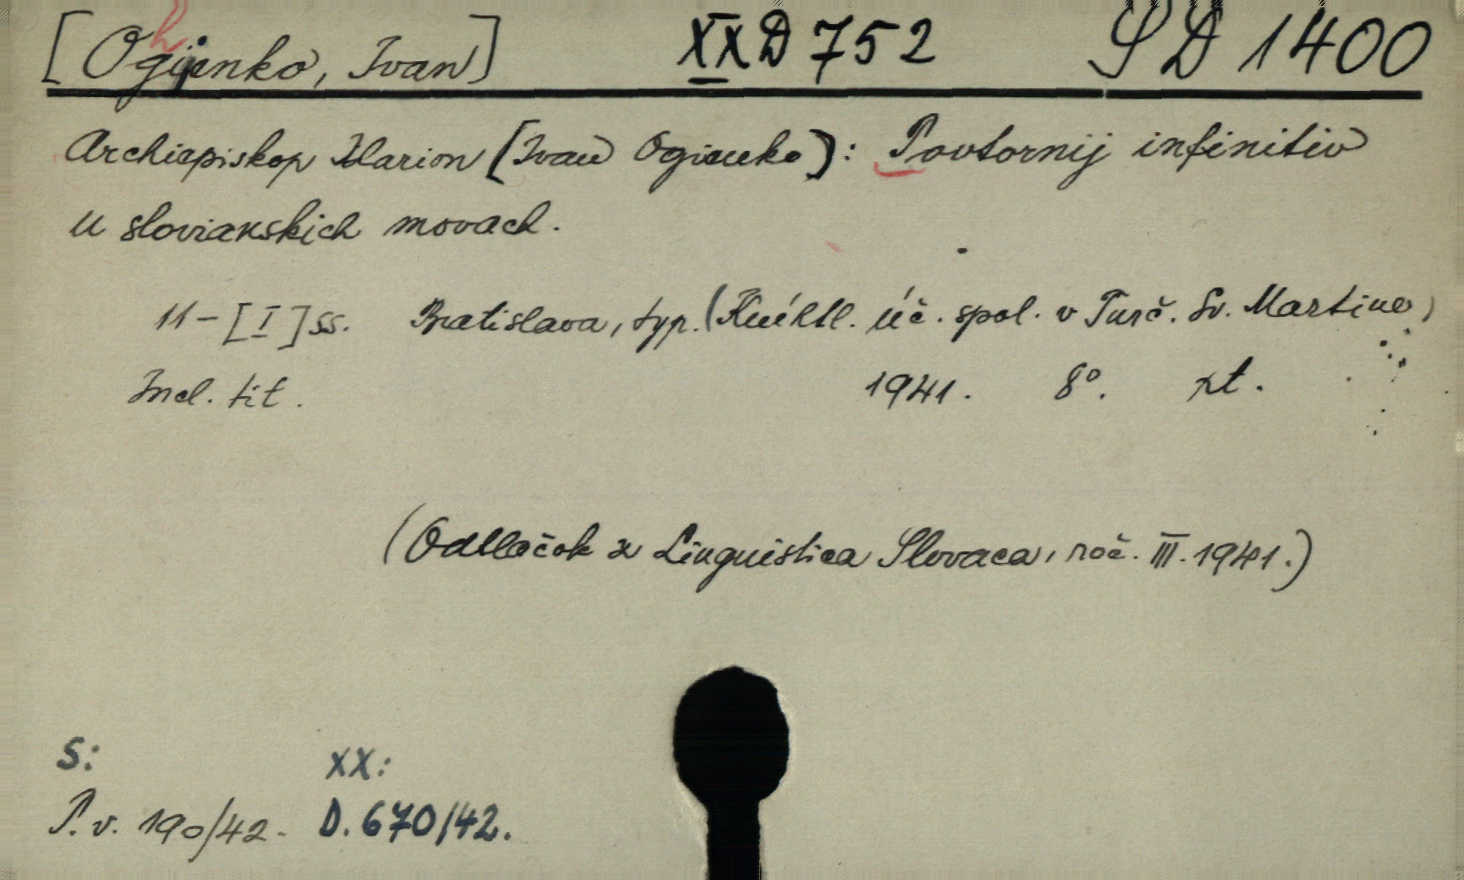 [Ogijenko, Ivan] XXD752 SD 1400
h
Archiepiskop Ilarion (Ivan Ogienko): Povtornij infinitiv
u slovianskich movach.
11-[I] ss. Bratislava, typ. (Kníhtl. úč. spol. v Turč. Sv. Martine)
Incl. tit. 1941. 8°. pt.
(Odtlačok z Linguistica Slovaca, roč. III. 1941.)
S: XX:
P. v. 190/42. D. 670/42.